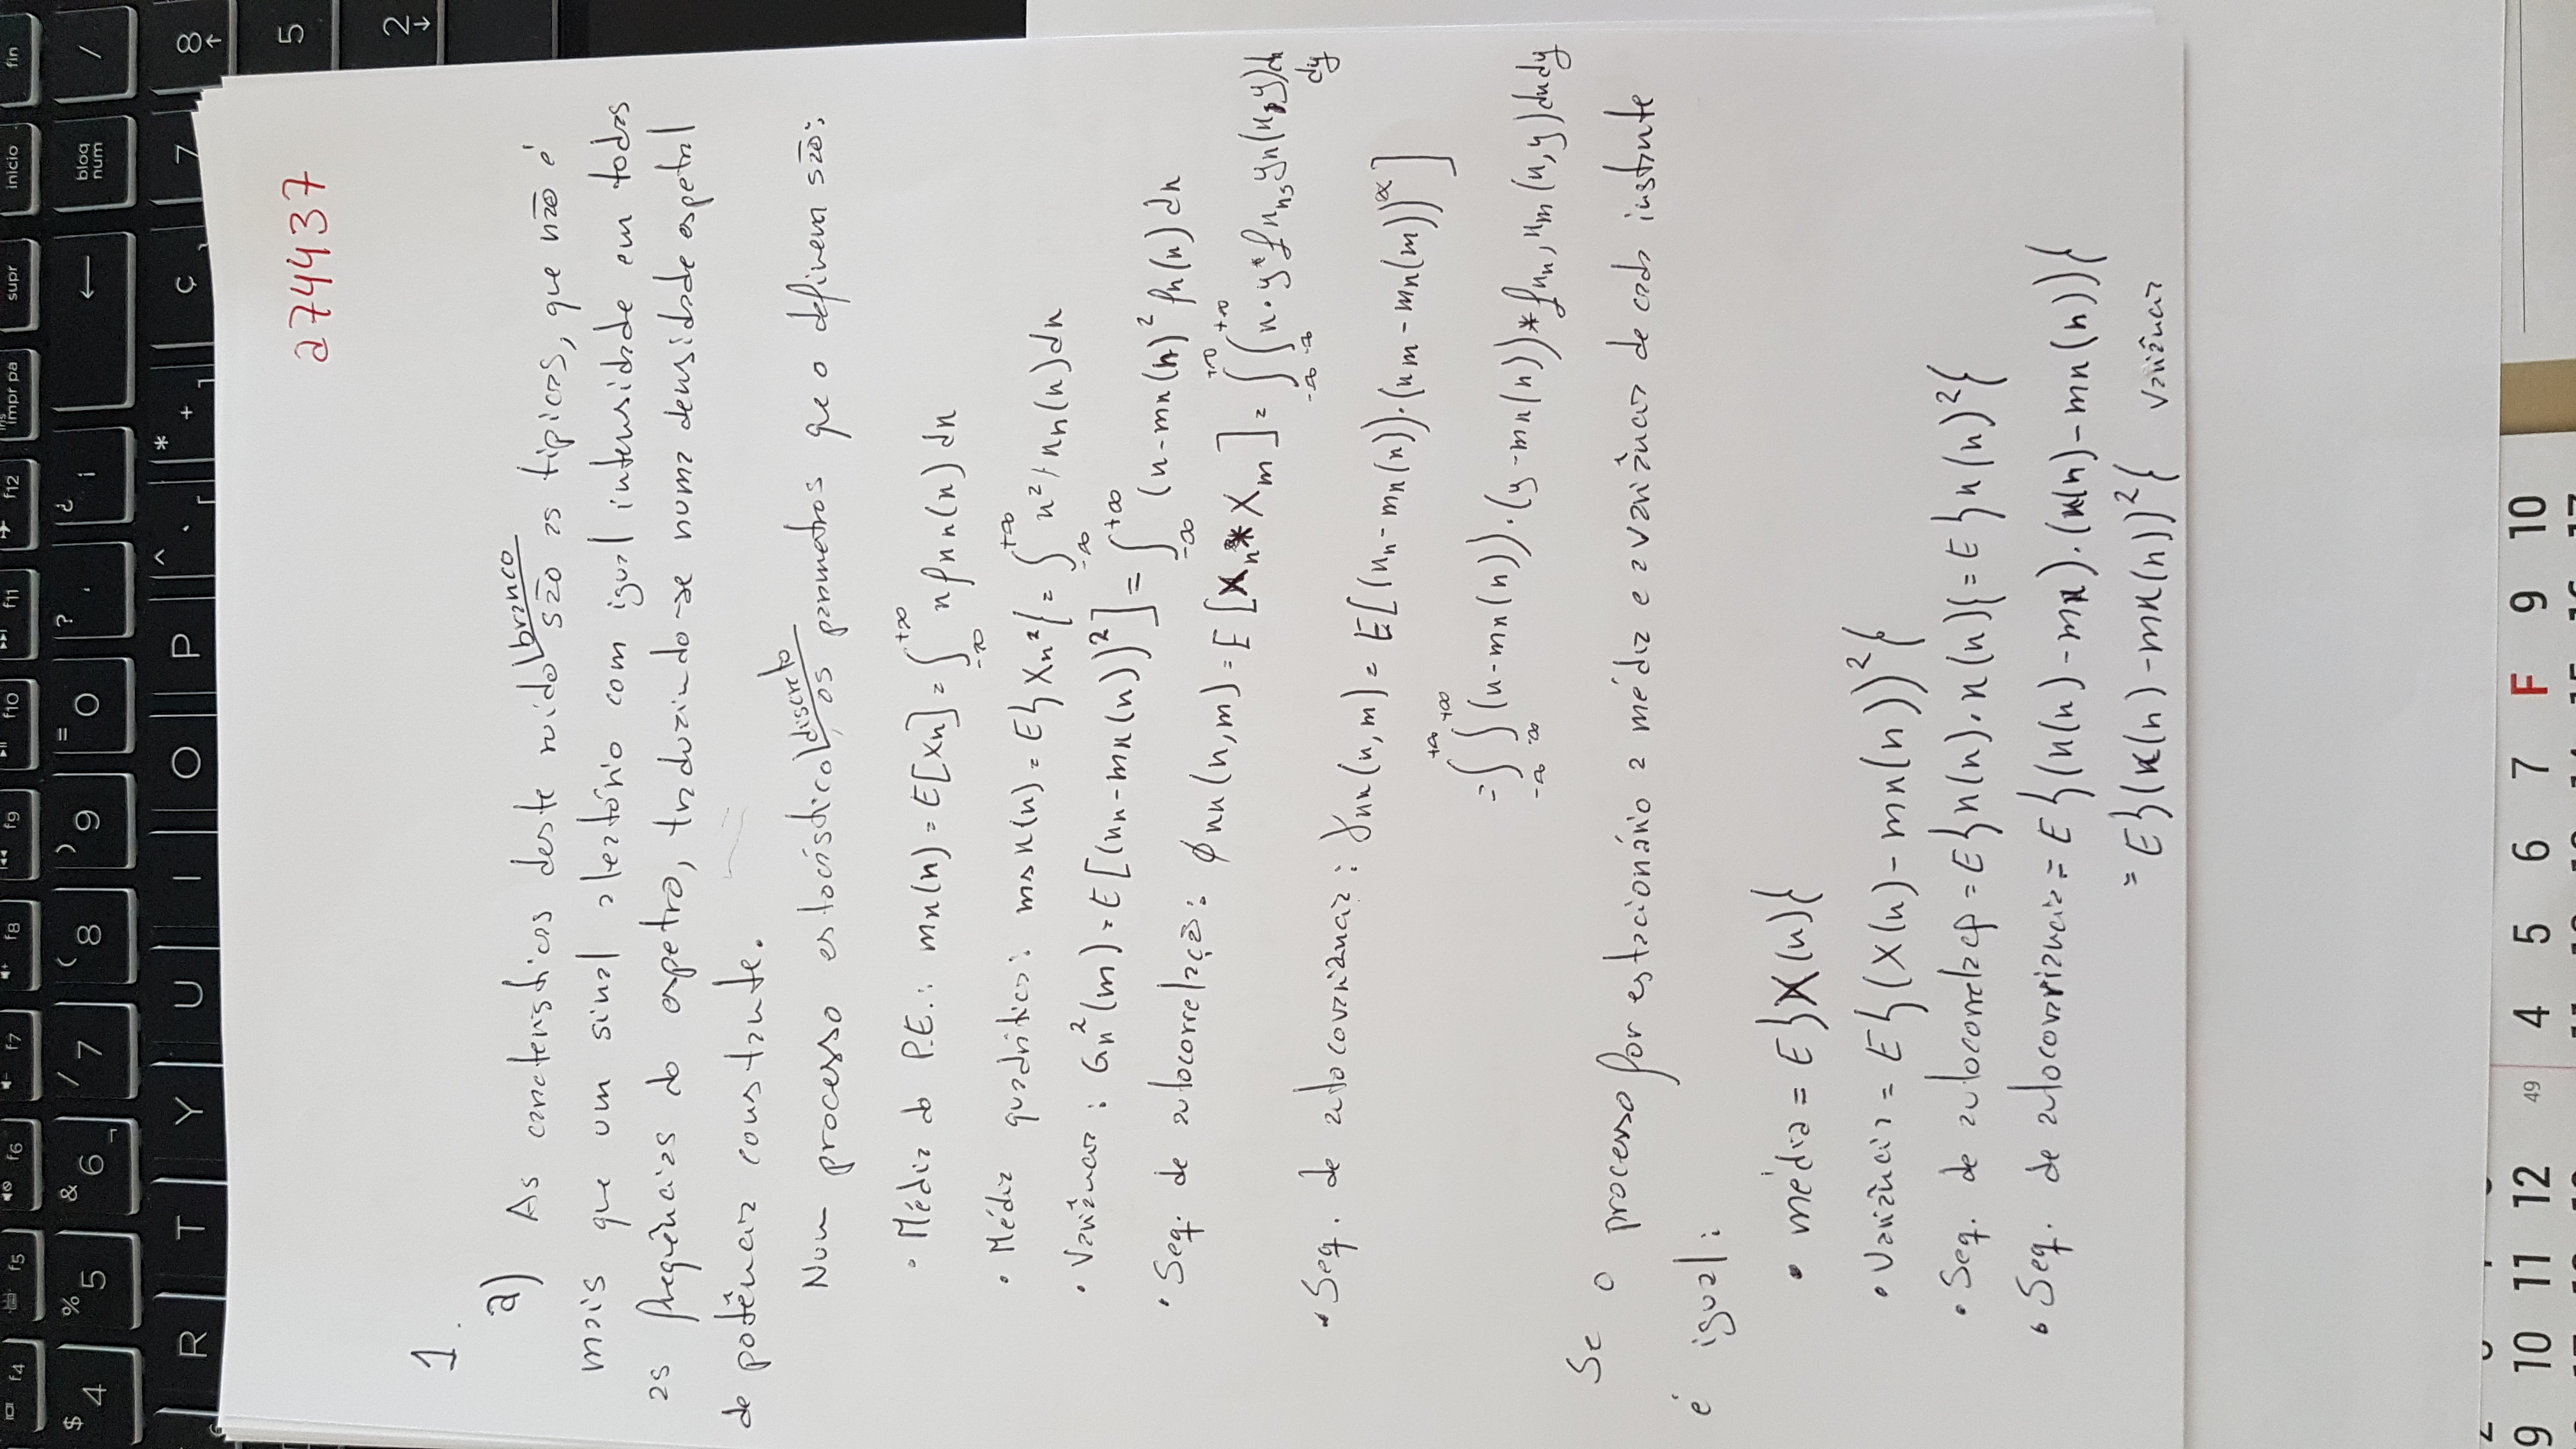 f4 f5 f6 f7 f8 f9 f10 f11 f12 impr pa supr inicio fin
$ 4 % 5 & 6 ¬ / 7 ( 8 ) 9 = 0 ? ' ¿ ¡ ← bloq num /
R T Y U I O P ^ ` [ * + ] Ç 7 8 ↑
5
2 ↓
a74437
1.
a) As características deste ruído branco são as típicas, que não é
mais que um sinal aleatório com igual intensidade em todas
as frequências do espetro, traduzindo-se numa densidade espetral
de potência constante.
Num processo estocástico discreto, os parametros que o definem são:
• Média do P.E.: mx(n) = E[Xn] = ∫_{-∞}^{+∞} x fxn(x) dx
• Média quadrática: msx(n) = E{Xn²} = ∫_{-∞}^{+∞} x² fxn(x) dx
• Variância: σx²(m) = E[(xn - mx(n))²] = ∫_{-∞}^{+∞} (x - mx(n)² fx(x) dx
• Seq. de autocorrelação: ϕxx(n,m) = E[Xn * Xm] = ∫_{-∞}^{+∞} ∫_{-∞}^{+∞} x · y* fxn, yn(x,y) dx
dy
• Seq. de autocovariância: γxx(n,m) = E[(xn - mx(n)) · (xm - mx(m))*]
= ∫_{-∞}^{+∞} ∫_{-∞}^{+∞} (x - mx(n)) · (y - mx(n)) * fxn, xm (x,y) dxdy
Se o processo for estacionário a média e a variância de cada instante
é igual:
• média = E{X(n)}
• Variância = E{(X(n) - mx(n))²}
• Seq. de autocorrelação = E{x(n) · x(n)} = E{x(n)²}
• Seq. de autocovariância = E{(x(n) - mx) · (x(n) - mx(n))}
= E{(x(n) - mx(n))²} variância
9 10 11 12 49 4 5 6 7 F 9 10